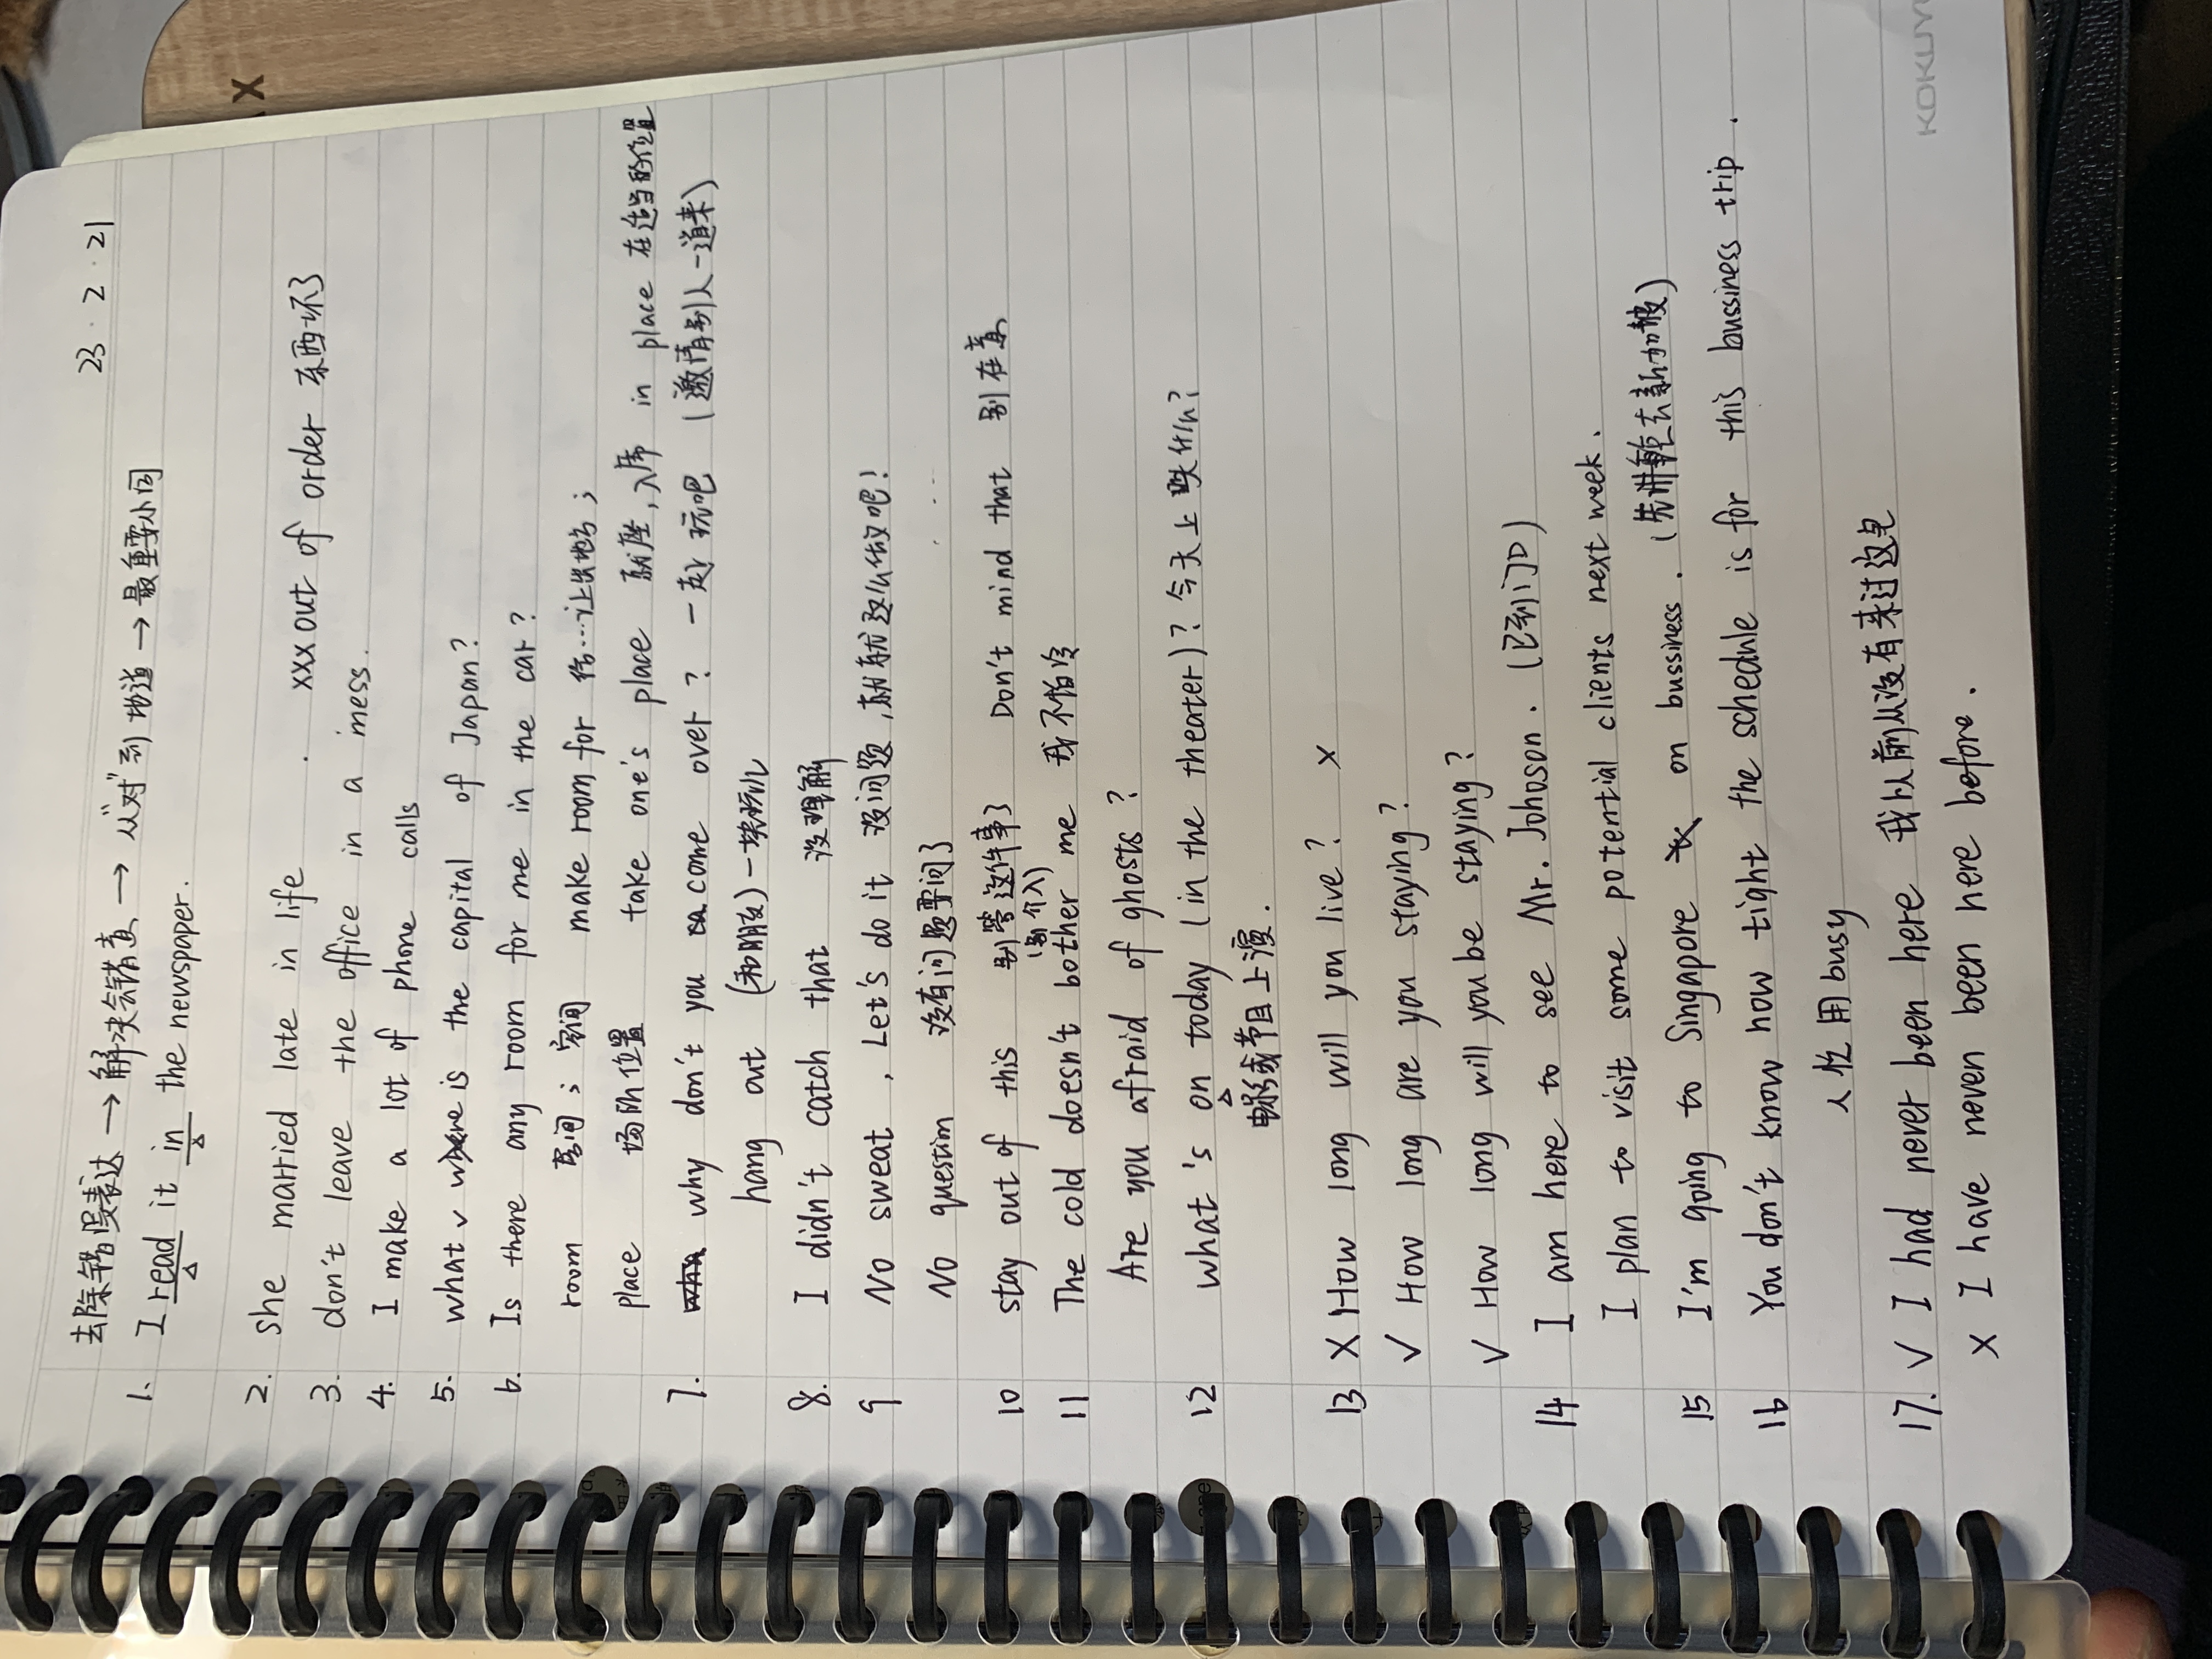 23.2.21
去除错误表达 → 解决会错意 → 从“对”到 地道 → 最重要小词
1. I read it in the newspaper.
2. she married late in life . xxx out of order 东西坏了
3. don't leave the office in a mess.
4. I make a lot of phone calls
5. what ✓ where is the capital of Japan?
6. Is there any room for me in the car?
room 房间; 空间 make room for 给…让出地方;
place 场所 位置 take one's place 就座,入席 in place 在适当的位置
7. why don't you ca come over? 一起玩吧 (邀请别人一道来)
hang out (和朋友)一块玩儿
8. I didn't catch that 没理解
9 No sweat , Let's do it 没问题,就就这么做吧!
No question 没有问题要问了
10 stay out of this 别管这件事了 Don't mind that 别在意
(别介入)
11 The cold doesn't bother me 我不怕冷
Are you afraid of ghosts?
12 what's on today (in the theater)? 今天上映什么?
电影或节目上演.
13 X How long will you live? x
✓ How long are you staying?
✓ How long will you be staying?
14 I am here to see Mr. Johoson. (已到门口)
I plan to visit some potential clients next week.
15 I'm going to Singapore on bussiness. (先讲去新加坡)
16 You don't know how tight the schedule is for this bussiness trip.
人忙用busy
17. ✓ I had never been here 我以前从没有来过这
x I have neven been here before.
KOKUY